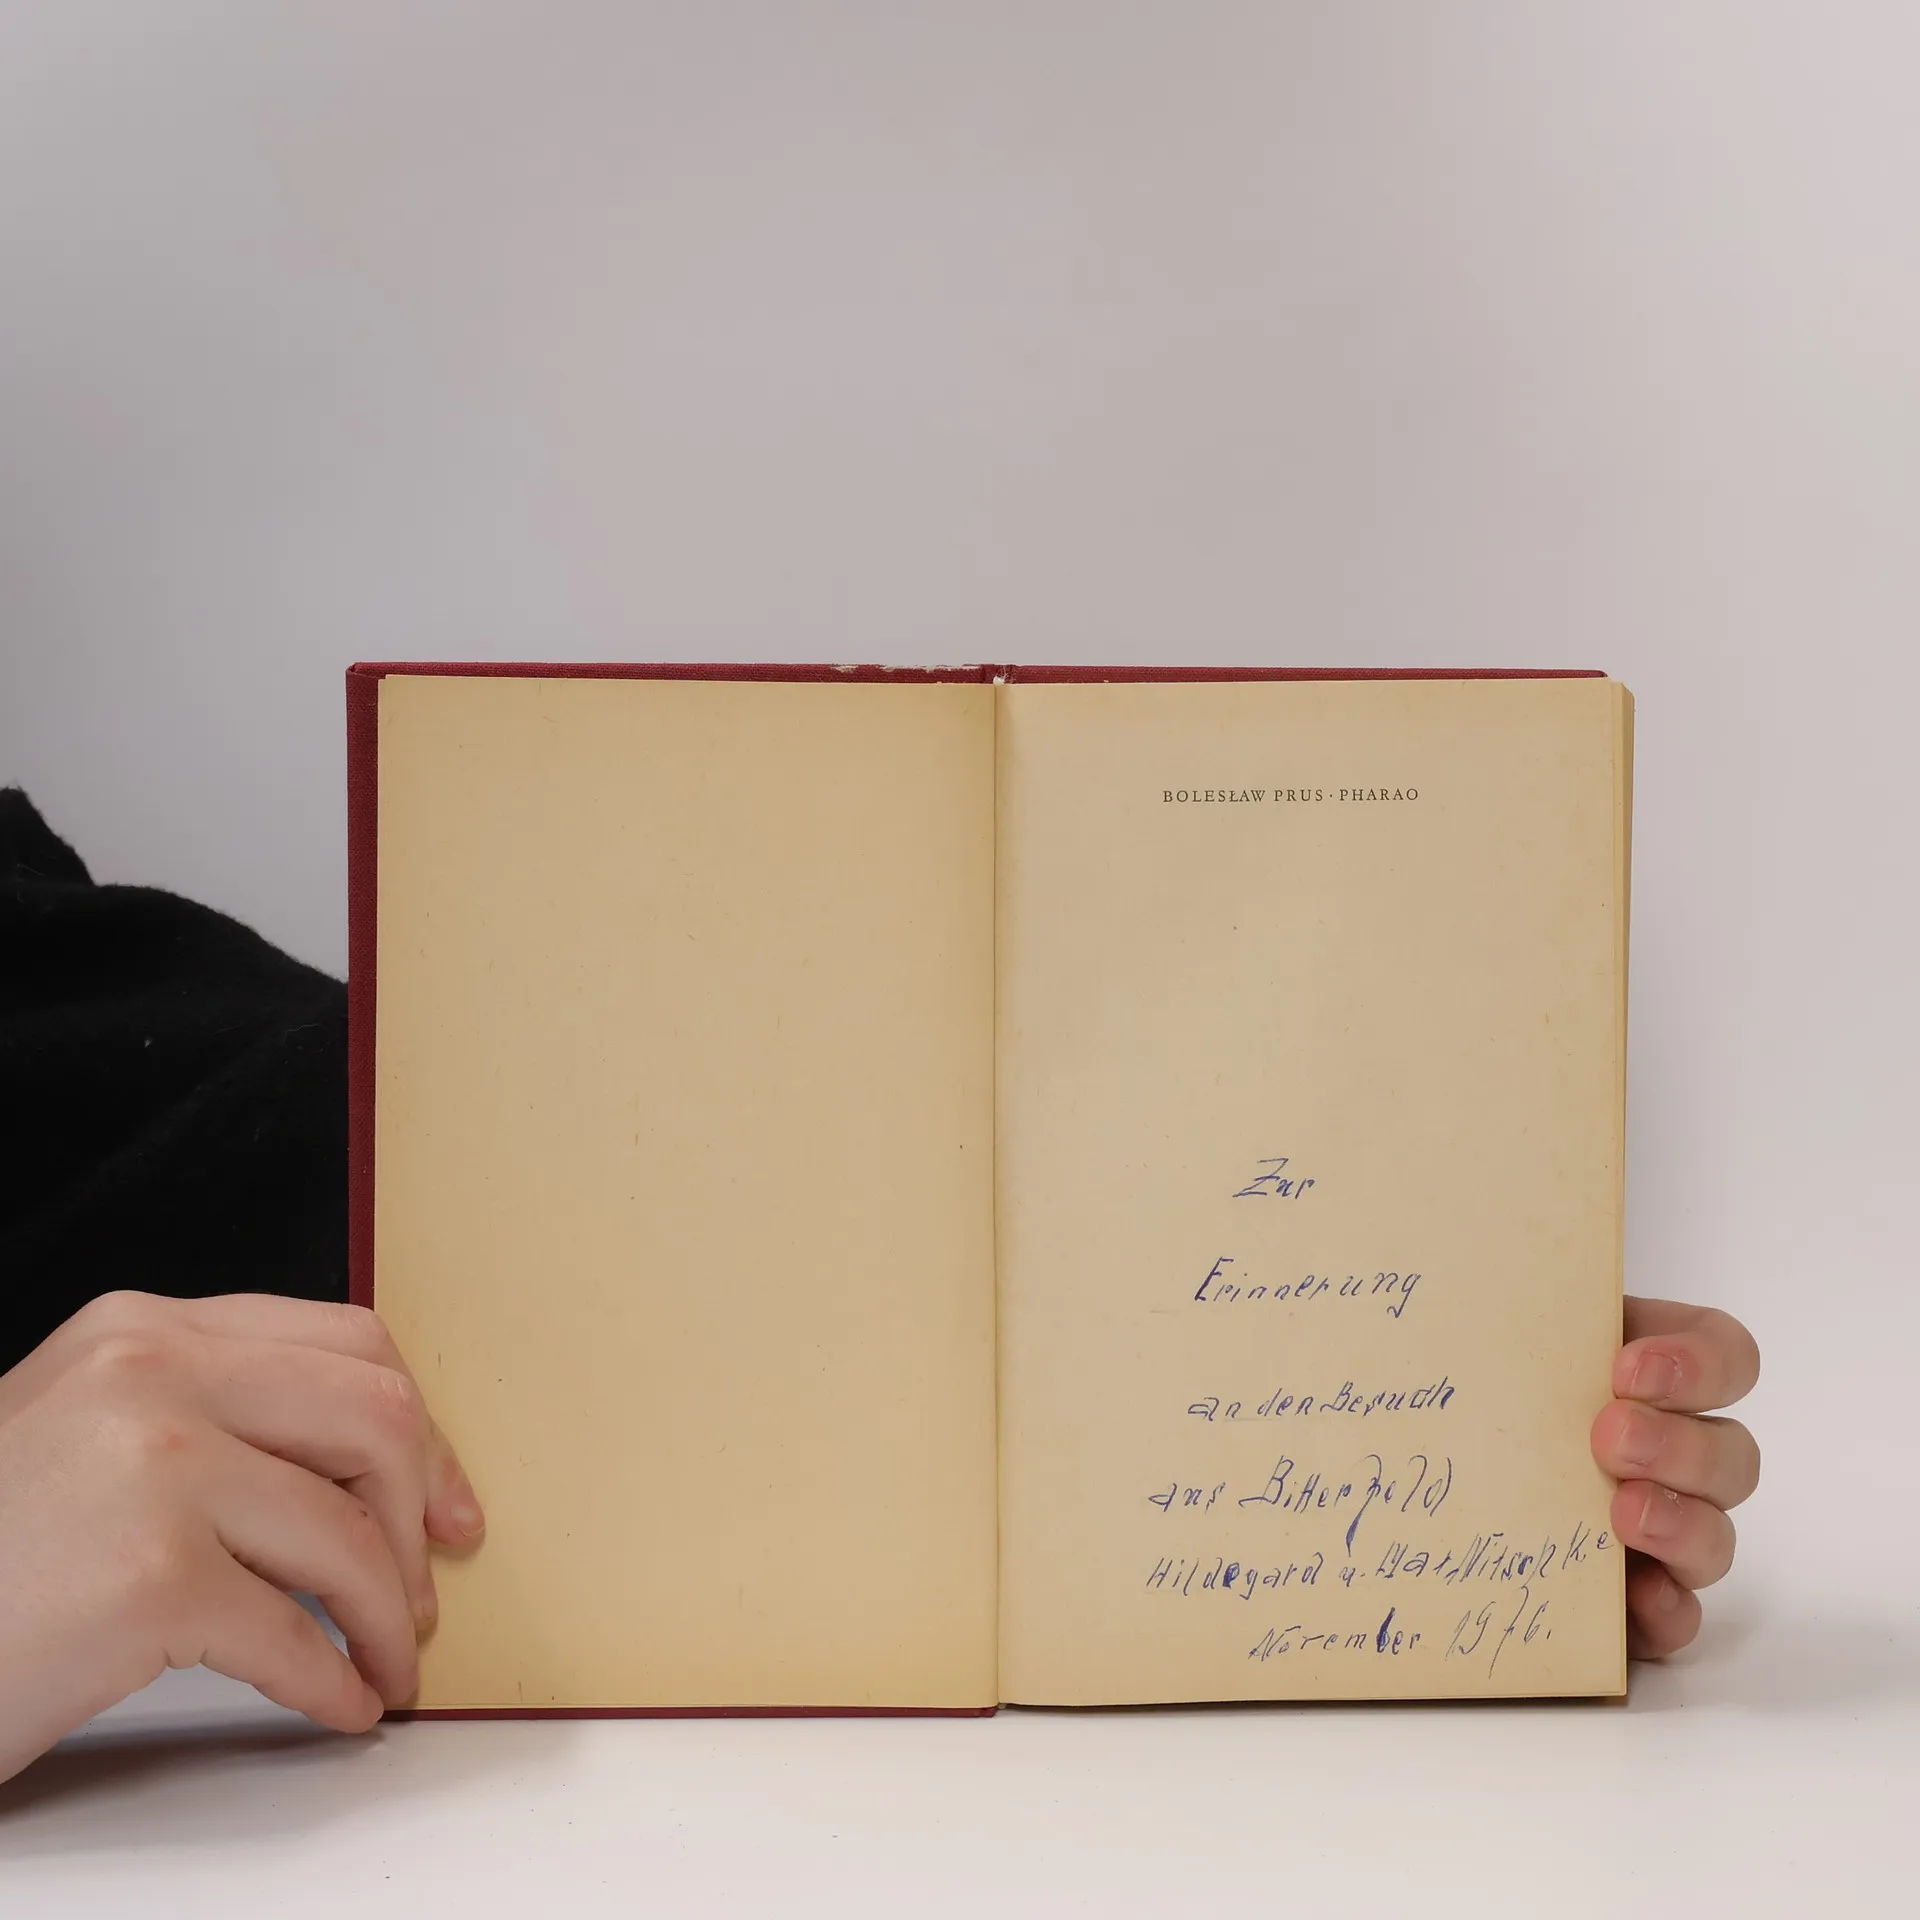 BOLESŁAW PRUS · PHARAO
Zur
Erinnerung
an den Besuch
aus Bitterfeld
Hildegard u. Nitschke
November 1976.